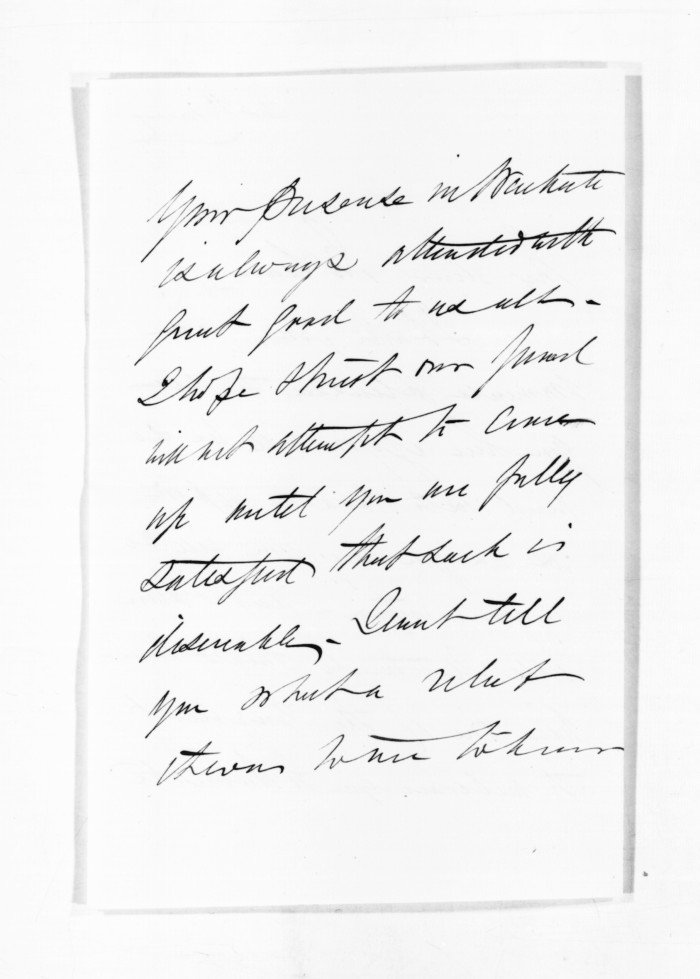 Your presence in Waikato
is always attended with
great good to us all -
I hope & trust our friend
will not attempt to come
up until you are fully
satisfied that such is
desirable, - I can't tell
you what a relief
it was to me to know